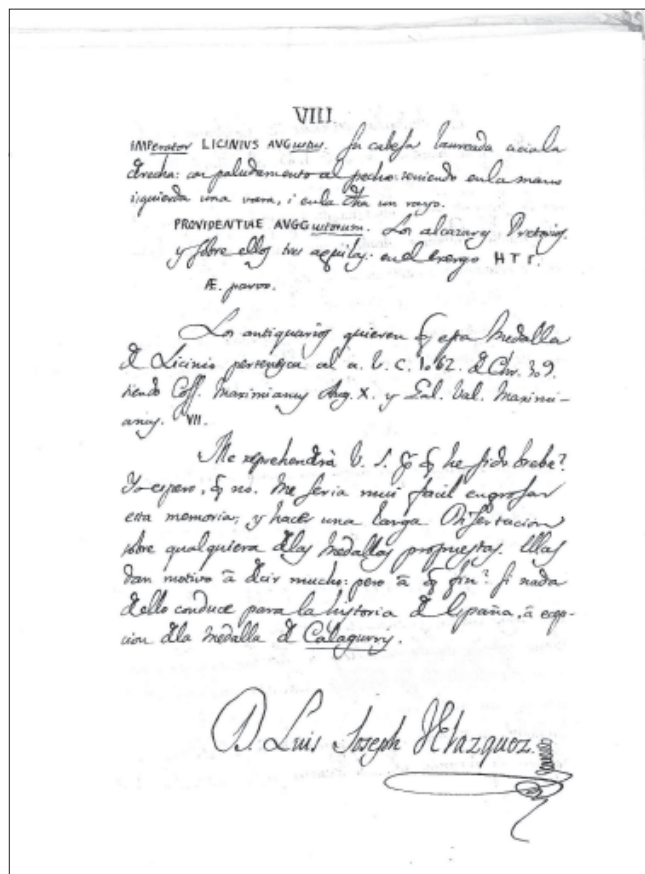 VIII.
IMPerator LICINIVS AVGustus. Su cabesa laureada acia la
derecha: con paludamento al pecho: teniendo en la mano
izquierda una vara, i en la dha un rayo.
PROVIDENTIAE AVGGustorum. Los alcazares Pretorios.
y sobre ellos tres aguilas. en el exergo H T Γ.
Æ. parvo.
Los antiquarios quieren q̃ esta Medalla
de Licinio pertenezca al a. V. C. 1062. de Chr. 309.
siendo Coss. Maximianus Aug. X. y Gal. Val. Maximi-
anus. VII.
Me reprehendrà V. S. q̃ he sido brebe?
Yo espero, q̃ no. Me seria mui facil engrosar
esta memoria, y hacer una larga Disertacion
sobre qualquiera dlas Medallas propuestas. Ellas
dan motivo ā dcir mucho: pero ā q̃ fin? si nada
dello conduce para la historia d España, ā ecep-
cion dla Medalla d Calagurris.
D. Luis Joseph Velazquez.